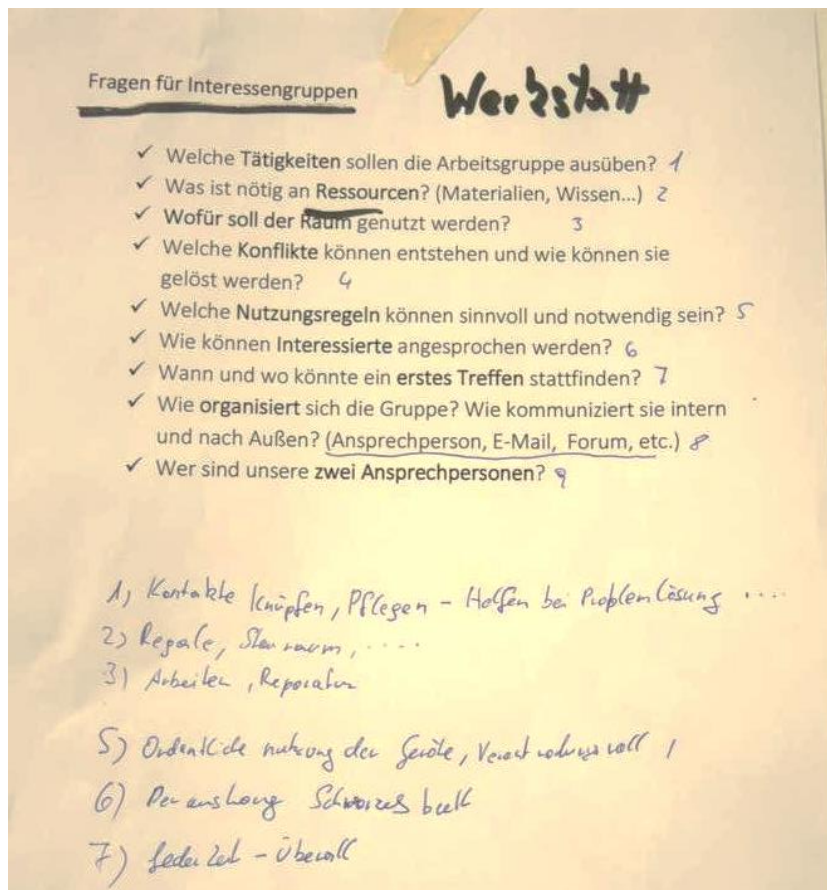 Fragen für Interessengruppen
Werkstatt
✓ Welche Tätigkeiten sollen die Arbeitsgruppe ausüben? 1
✓ Was ist nötig an Ressourcen? (Materialien, Wissen...) 2
✓ Wofür soll der Raum genutzt werden? 3
✓ Welche Konflikte können entstehen und wie können sie
gelöst werden? 4
✓ Welche Nutzungsregeln können sinnvoll und notwendig sein? 5
✓ Wie können Interessierte angesprochen werden? 6
✓ Wann und wo könnte ein erstes Treffen stattfinden? 7
✓ Wie organisiert sich die Gruppe? Wie kommuniziert sie intern
und nach Außen? (Ansprechperson, E-Mail, Forum, etc.) 8
✓ Wer sind unsere zwei Ansprechpersonen? 9
1) Kontakte Knüpfen, Pflegen - Helfen bei Problemlösung ....
2) Regale, Stauraum, ....
3) Arbeiten, Reparatur
5) Ordentliche nutzung der Geräte,
6) Per aushang Schwarzes
7) Jederzeit - Überall